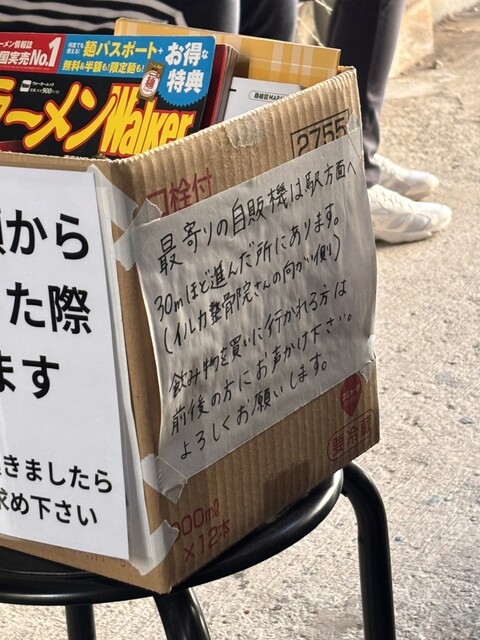 ーメン情報誌
国実売No.1
麺パスポート+
無料&半額も!限定麺も!
お得な
特典
ラーメンWalker
2755
口栓付
最寄りの自販機は駅方面へ
30mほど進んだ所にあります。
(イルカ整骨院さんの向かい側)
飲み物を買いに行かれる方は
前後の方にお声がけ下さい。
よろしくお願いします。
要冷蔵
000ml
×12本
から
た際
ます
きましたら
求め下さい